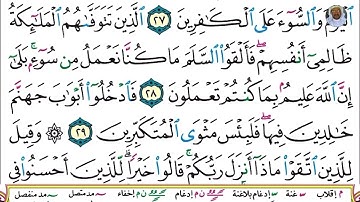 ٱلۡيَوۡمَ وَٱلسُّوٓءَ عَلَى ٱلۡكَٰفِرِينَ ٢٧ ٱلَّذِينَ تَتَوَفَّىٰهُمُ ٱلۡمَلَٰٓئِكَةُ
ظَالِمِيٓ أَنفُسِهِمۡۖ فَأَلۡقَوُاْ ٱلسَّلَمَ مَا كُنَّا نَعۡمَلُ مِن سُوٓءِۭۚ بَلَىٰٓ
إِنَّ ٱللَّهَ عَلِيمُۢ بِمَا كُنتُمۡ تَعۡمَلُونَ ٢٨ فَٱدۡخُلُوٓاْ أَبۡوَٰبَ جَهَنَّمَ
خَٰلِدِينَ فِيهَاۖ فَلَبِئۡسَ مَثۡوَى ٱلۡمُتَكَبِّرِينَ ٢٩ ۞ وَقِيلَ
لِلَّذِينَ ٱتَّقَوۡاْ مَاذَآ أَنزَلَ رَبُّكُمۡۚ قَالُواْ خَيۡرٗاۗ لِّلَّذِينَ أَحۡسَنُواْ فِي
م إقلاب غنة إدغام بلاغنة ن م إدغام ن م إخفاء مد متصل مد منفصل